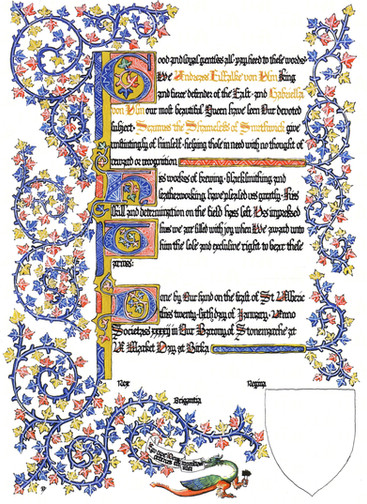 Good and loyal gentles all, pay heed to these words.
We Andreas Eisfalke von Ulm King
and fierce defender of the East, and Gabriella
von Ulm our most beautiful Queen have seen Our devoted
subject, Seamus the Shameless of Smethwick give
unstintingly of himself, helping those in need with no thought of
reward or recognition
His works of brewing, blacksmithing and
leatherworking, have pleased us greatly. His
skill and determination on the field has left Us impressed
Thus we are filled with joy when We award unto
him the sole and exclusive right to bear these
arms:
Done by Our hand on the feast of St
this twenty-fifth day of January, Anno
Societas XXXXI in Our Barony of Stonemarche at
A Market Day at Birka
Rex
Regina
Brigantia